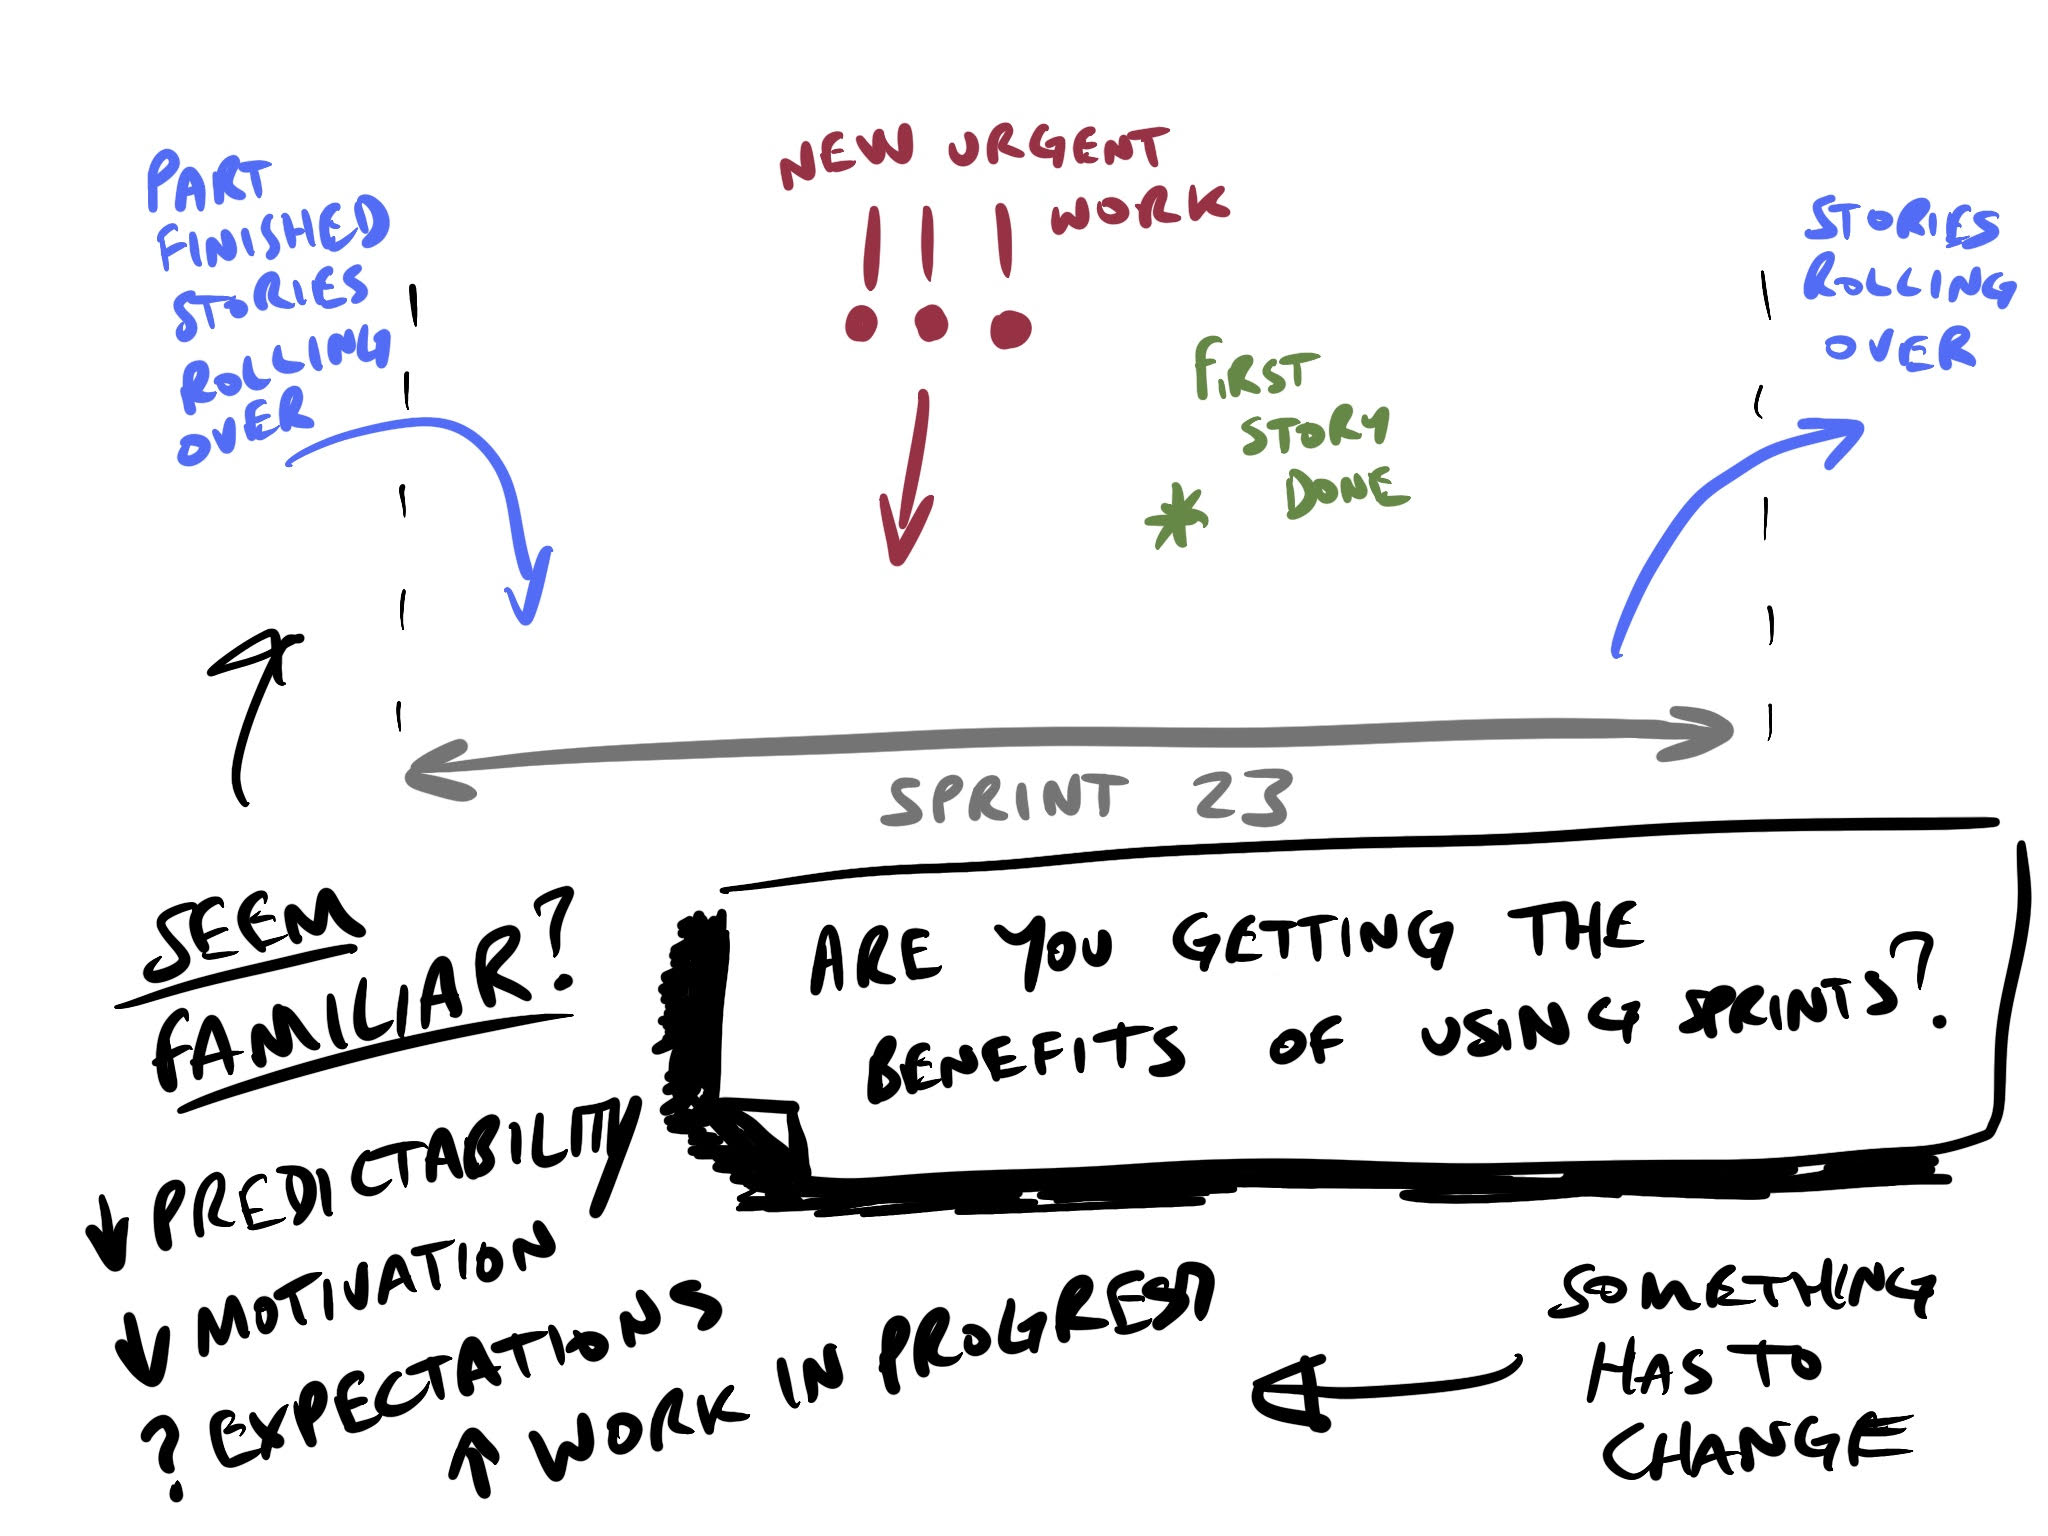 PART
FINISHED
STORIES
ROLLING
OVER
NEW URGENT
WORK
!!!
FIRST
STORY
DONE
*
STORIES
ROLLING
OVER
SPRINT 23
SEEM
FAMILIAR?
ARE YOU GETTING THE
BENEFITS OF USING SPRINTS?
↓ PREDICTABILITY
↓ MOTIVATION
? EXPECTATIONS
↑ WORK IN PROGRESS
SOMETHING
HAS TO
CHANGE